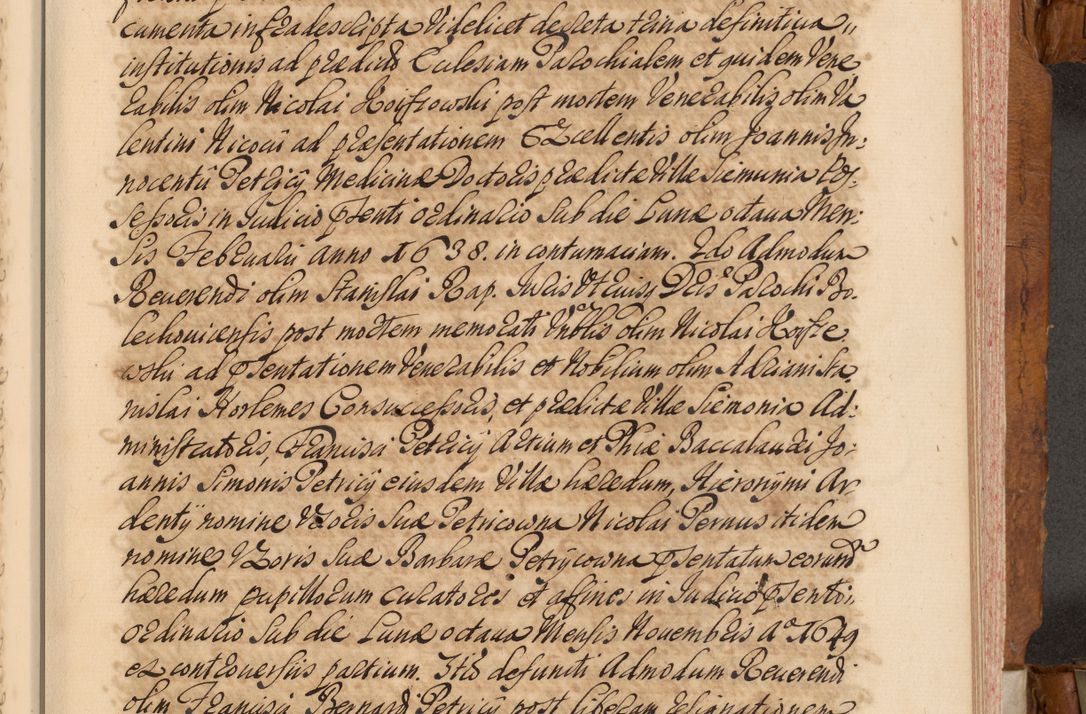 cumenta infradescripta videlicet decreta trina definitiva
institutionis ad praedictam Ecclesiam Parochialem et quidem Vene
rabilis olim Nicolai Koysrowski post mortem Venerabilis olim Va
lentini Nicocij ad praesentationem Excellentis olim Joannis In:
nocentij Petricij Medicinae Doctoris praedictae Villae Siemunia Pos:
sessoris in Judicio pnsenti ordinario sub die Lunae octava Men:
sis Februarii anno 1638. in contumaciam. Ido Admodum
Reverendi olim Stanislai Rap. Juris Utriusq Dris Parochi Bo:
lechoviensis post mortem memorati Vnblis olim Nicolai Koysro
wski ad pnsentationem Venerabilis et Nobilium olim Adriani Sta
nislai Horlemes Consuccessoris, et praedictae Villae Siemonia Ad:
ministratoris, Francisci Petricij Artium et Phiae Baccalaurei Jo:
annis Simonis Petricij eiusdem Villae haeredum, Hieronymi Ar
dentij nomine Uxoris suae Petricowna Nicolai Pernus itidem
nomine Uxoris suae Barbarae Petrycowna pnsentatum eorund
haeredum pupillorum curatores et affines in Judicio pnsenti
ordinario sub die Lunae octava Mensis Novembris Ao 1649
ex controversiis partium. Itio defuncti Admodum Reverendi
olim Francisci Bernardi Petricij post liberam resignationem